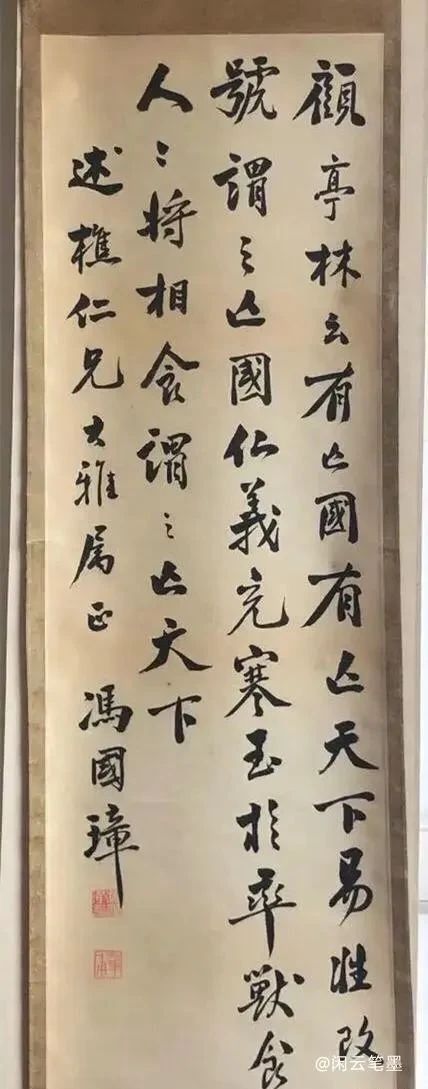 顧亭林云有亡國有亡天下易姓改
號謂之亡國仁義充塞至於率獸食
人人將相食謂之亡天下
述樵仁兄大雅屬正 馮國璋
@闲云笔墨